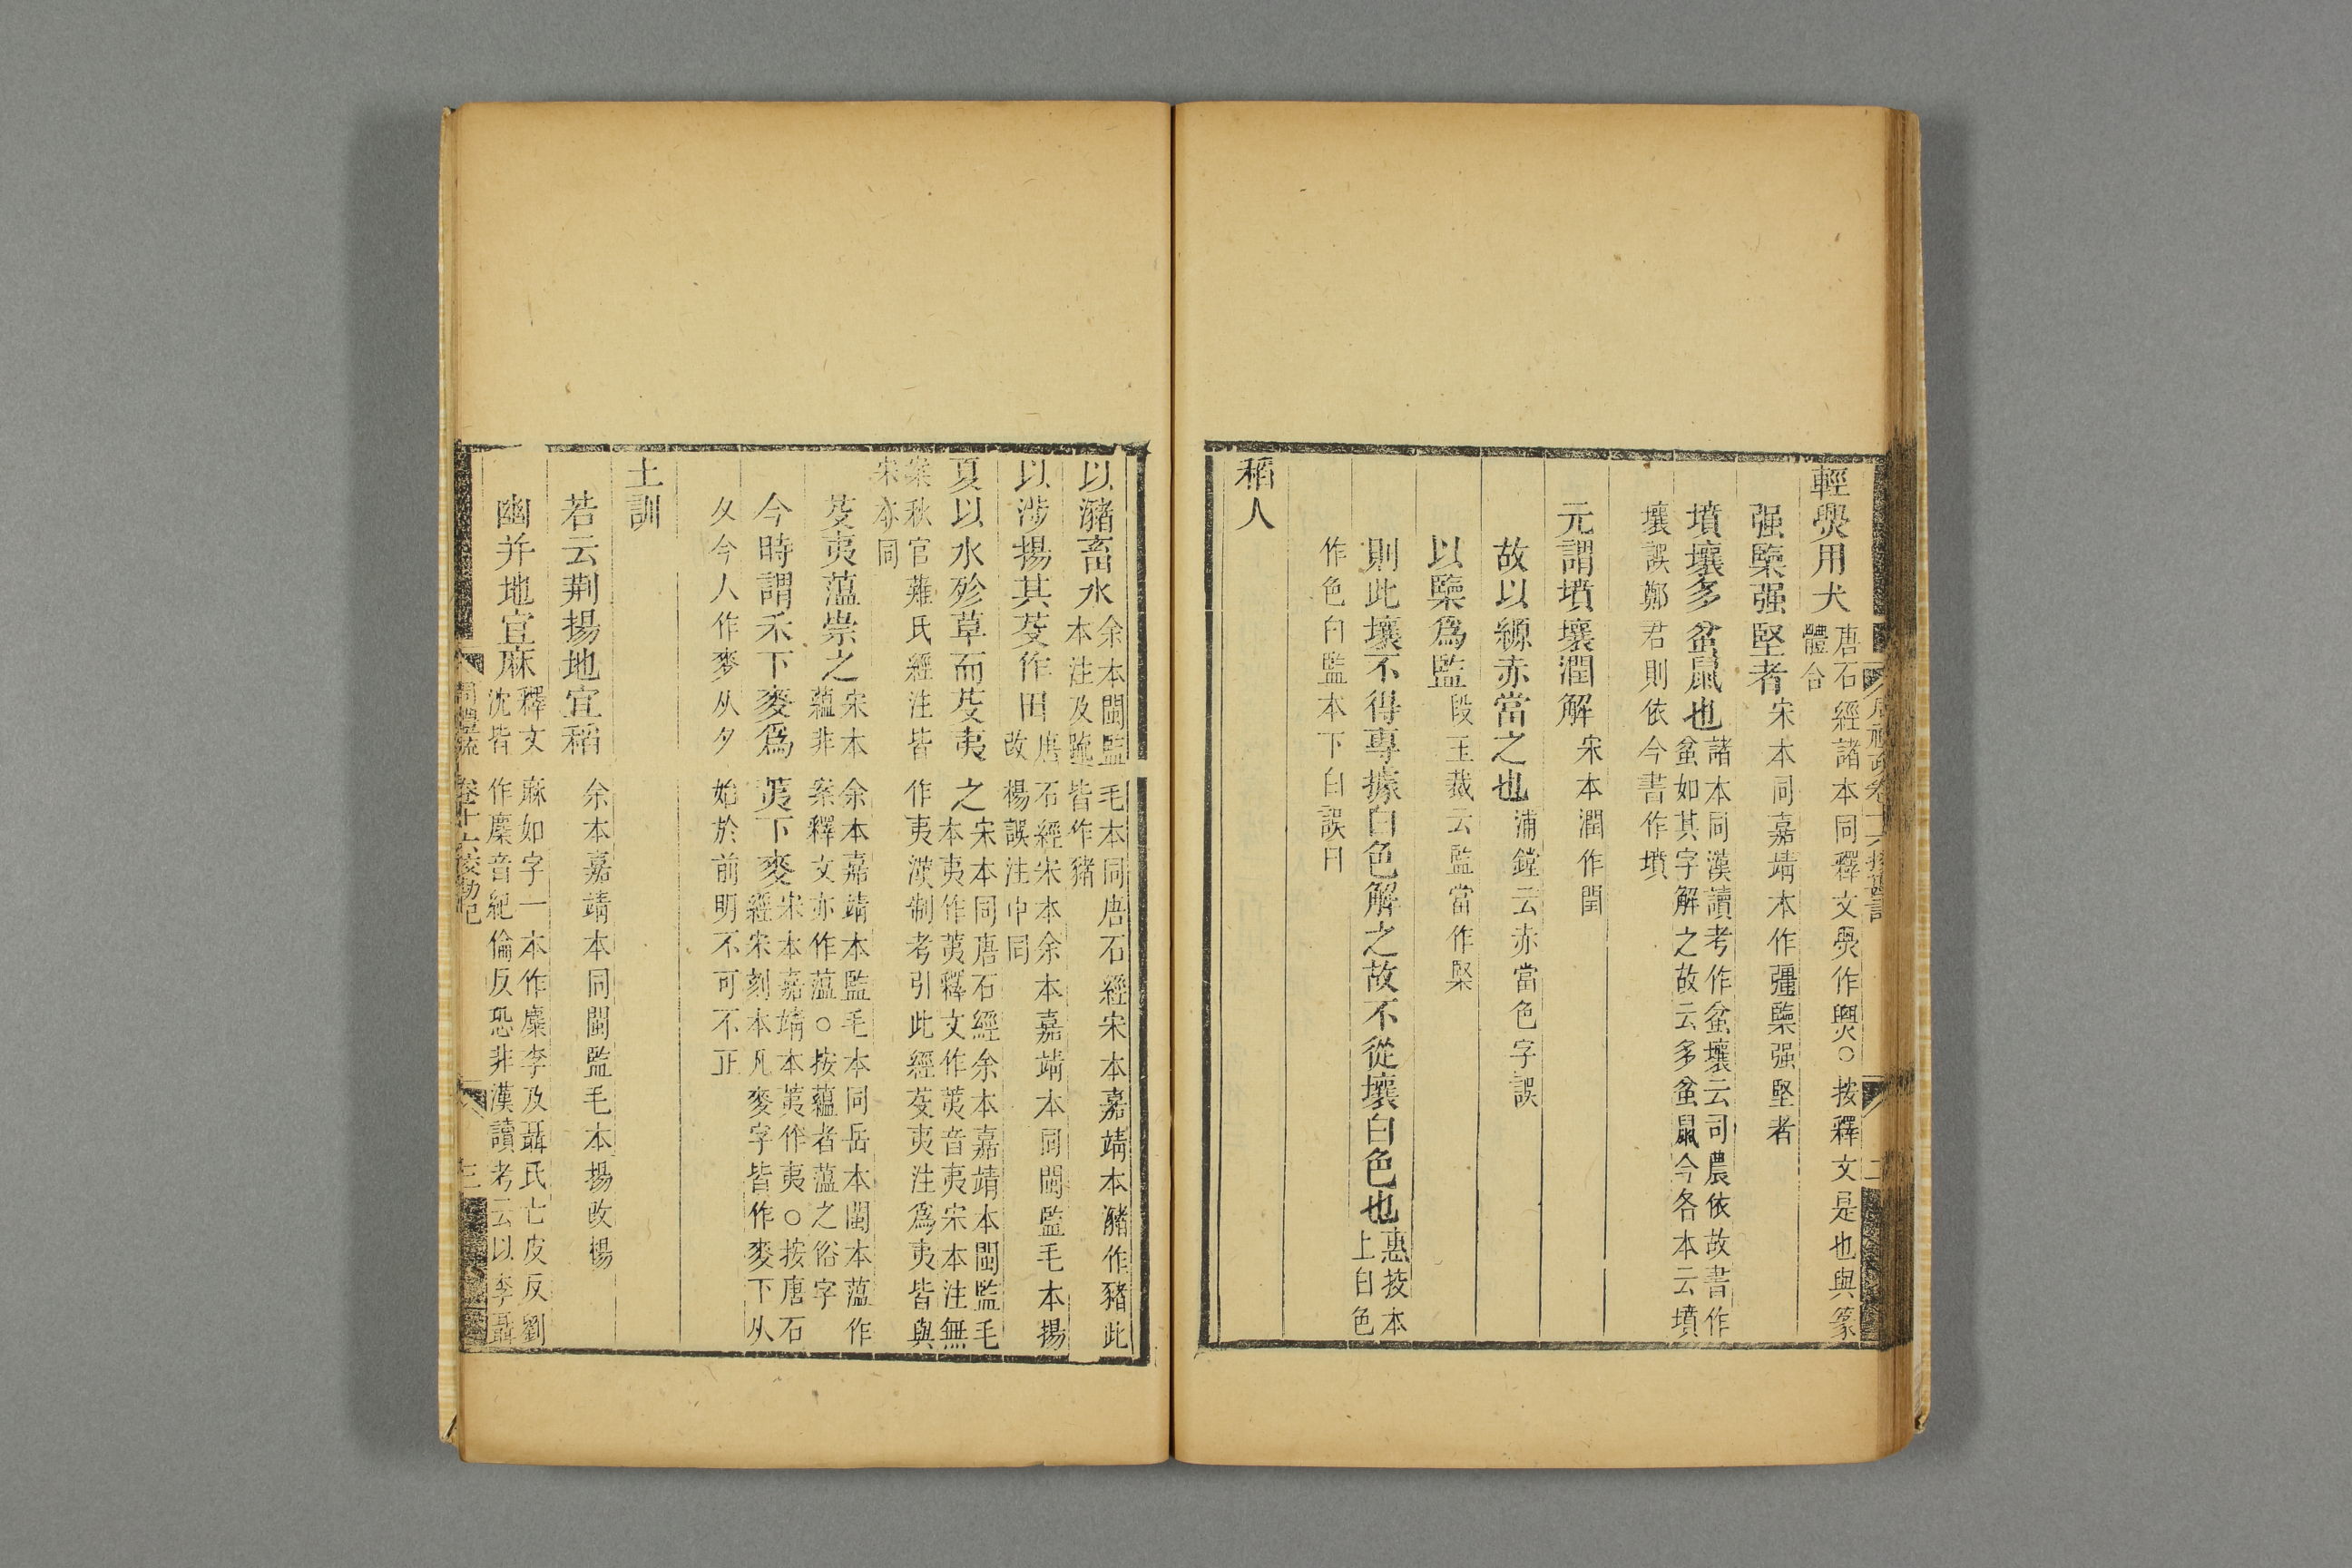 輕㷠用犬唐石經諸本同釋文㷠作爂○按釋文是也與篆
體合
强㯺强堅者宋本同嘉靖本作彊㯺强堅者
墳壤多蚠鼠也諸本同漢讀考作蚠壤云司農依故書作
蚠如其字解之故云多蚠鼠今各本云墳
壤誤鄭君則依今書作墳
元謂墳壤潤解宋本潤作閏
故以縓赤當之也浦鏜云赤當色字誤
以㯺爲監段玉裁云監當作㯺
則此壤不得專據白色解之故不從壤白色也惠挍本
上白色
作色白監本下白誤曰
稻人
以瀦畜水余本閩監毛本同唐石經宋本嘉靖本瀦作豬此
本注及疏皆作豬
以涉揚其芟作田唐石經宋本余本嘉靖本同閩監毛本揚
改楊誤注中同
夏以水殄草而芟荑之宋本同唐石經余本嘉靖本閩監毛
本夷作荑釋文作荑音夷宋本注無
案秋官薙氏經注皆作夷漢制考引此經芟夷注爲夷皆與
宋本同
芟夷薀崇之宋本余本嘉靖本監毛本同岳本閩本薀作
蘊非案釋文亦作薀○按蘊者薀之俗字
今時謂禾下麥爲荑下麥宋本嘉靖本荑作夷○按唐石
經宋刻本凡麥字皆作麥下从
夂今人作麥从夕始於前明不可不正
土訓
若云荆揚地宜稻余本嘉靖本同閩監毛本揚改楊
幽并地宜麻釋文麻如字一本作䕷李及聶氏亡皮反劉
沈皆作麇音紀倫反恐非漢讀考云以李聶
周禮疏 卷十六挍勘記 三